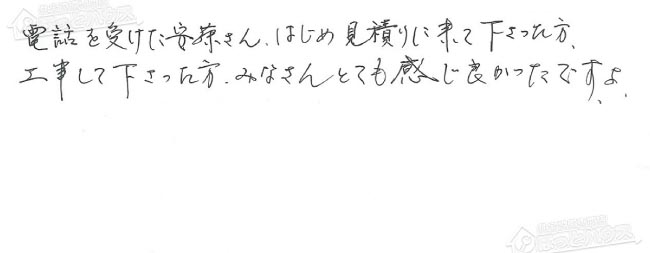 電話を受けた安藤さん、はじめ見積りに来て下さった方、
工事して下さった方、みなさんとても感じ良かったですよ、